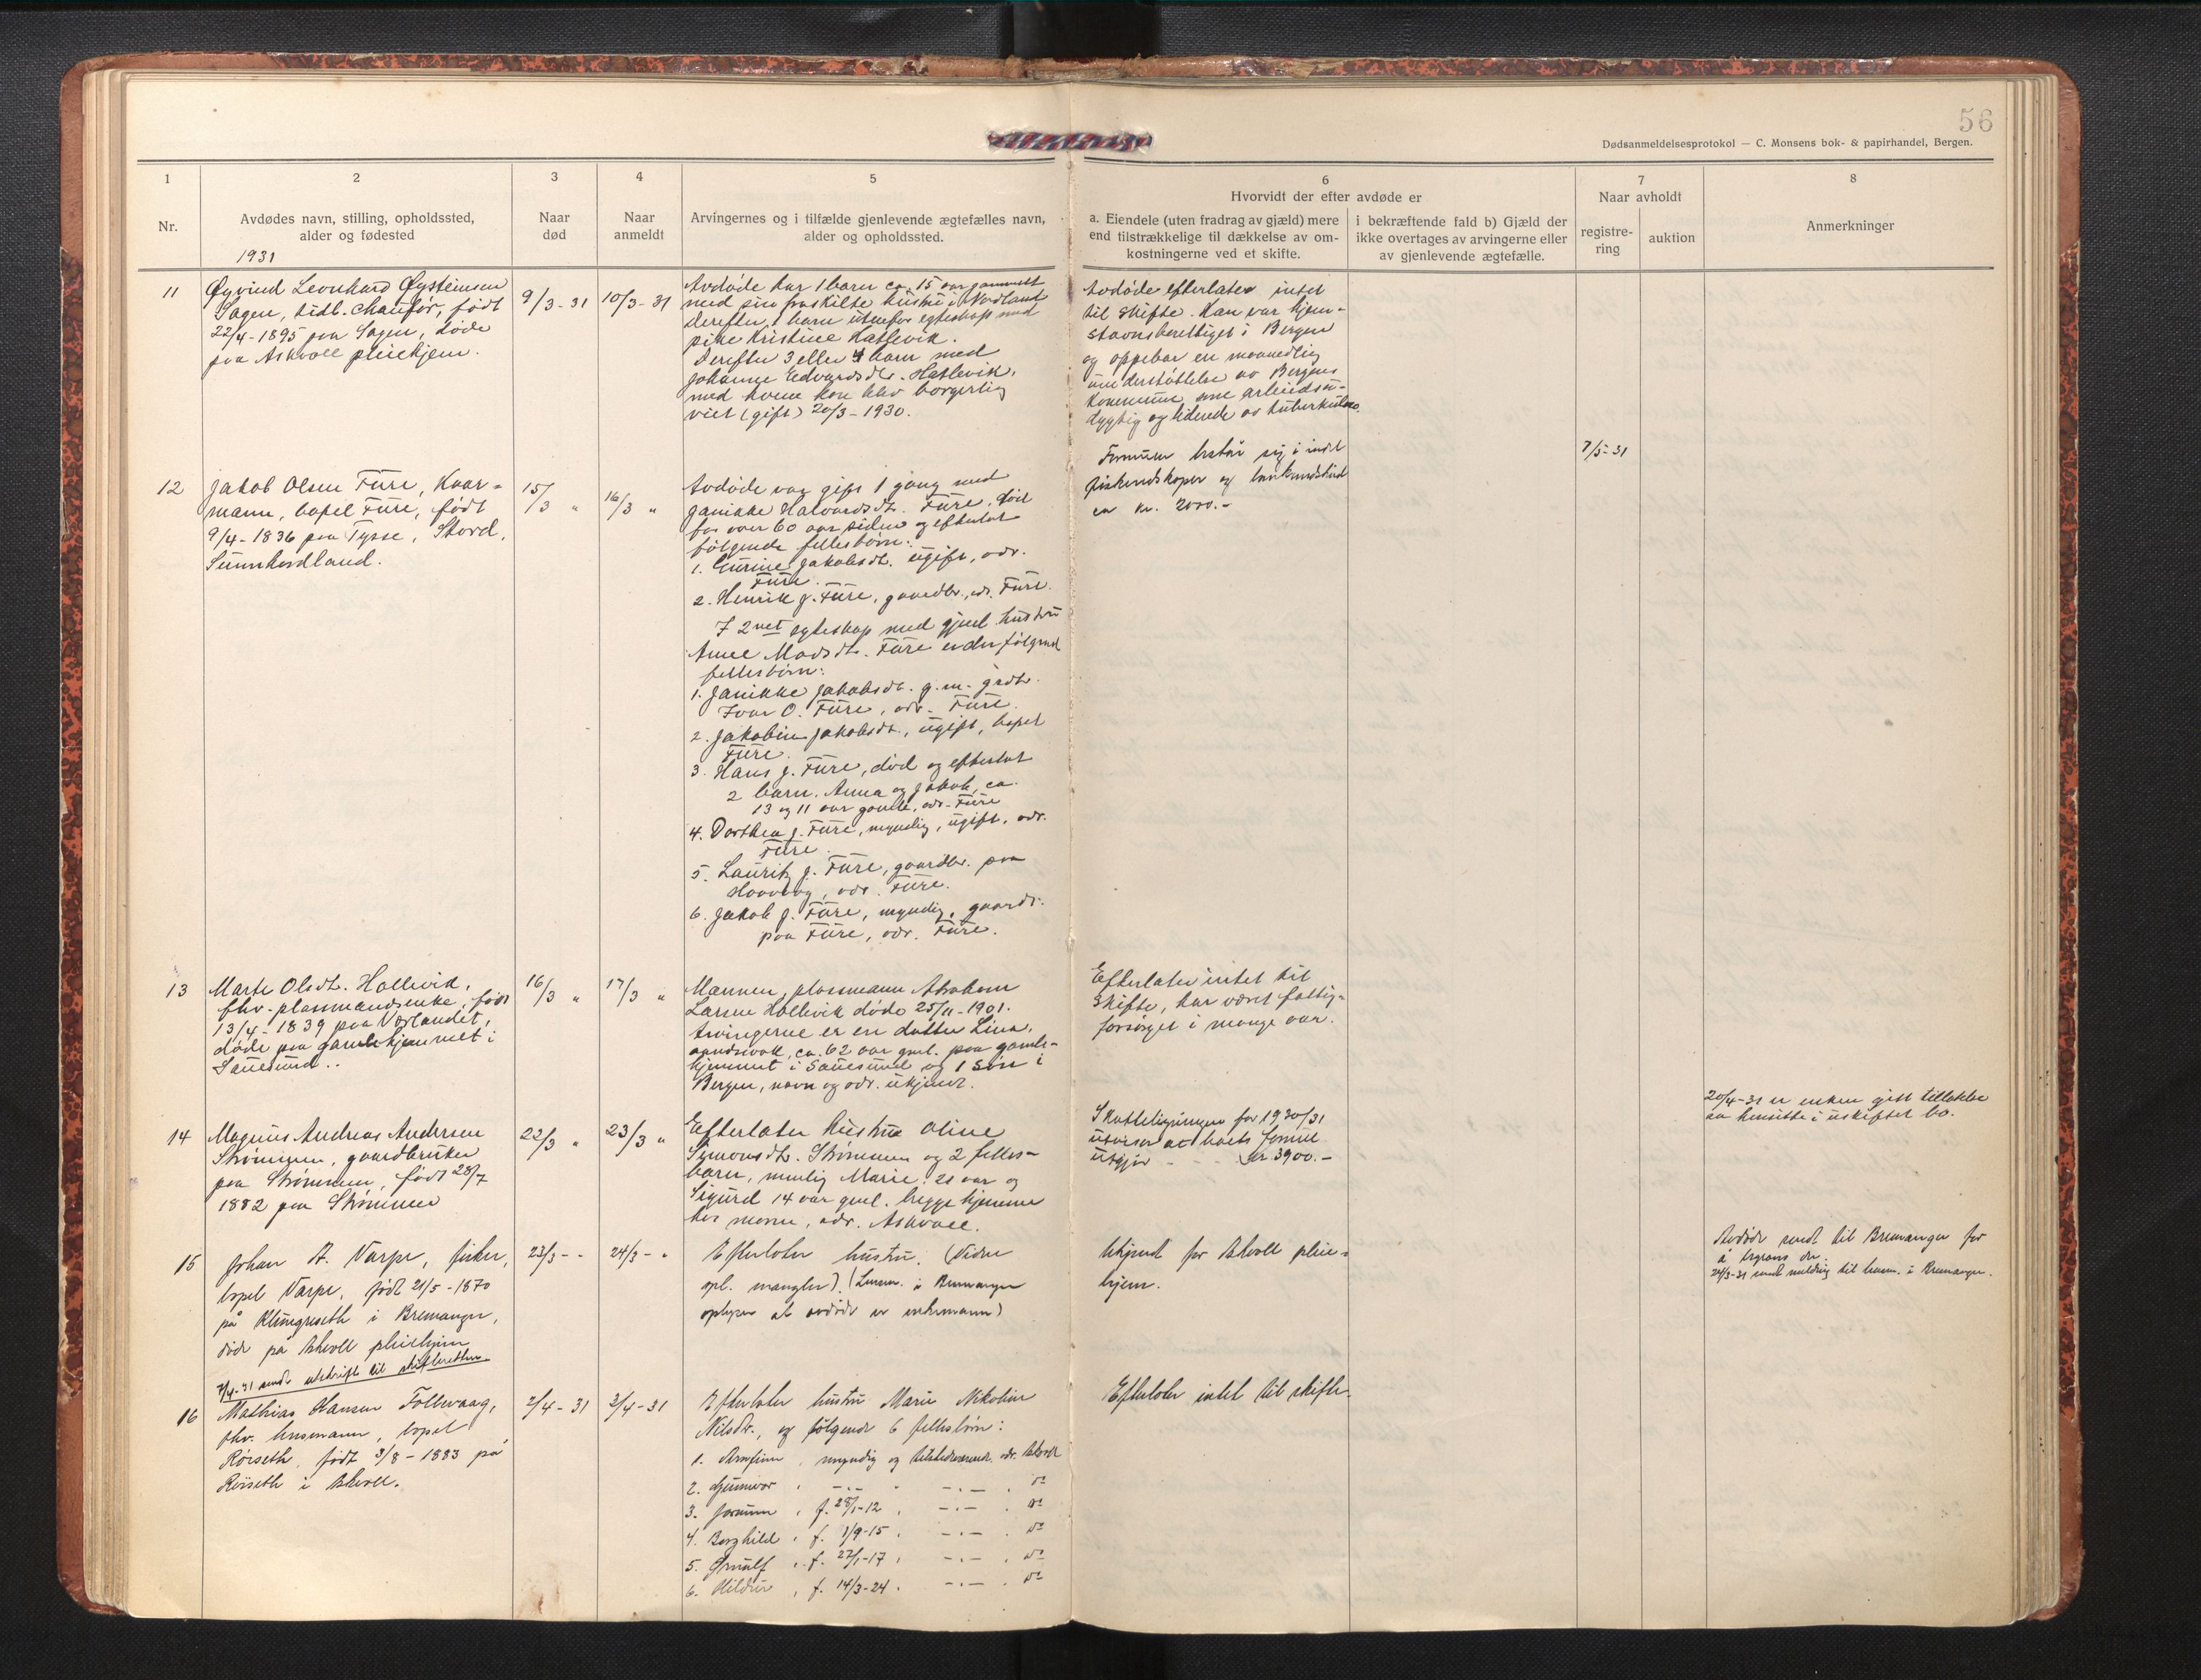 56
Dødsanmeldelsesprotokol — C. Monsens bok- & papirhandel, Bergen.
1
Nr.
2
Avdødes navn, stilling, opholdssted,
alder og fødested
1931
3
Naar
død
4
Naar
anmeldt
5
Arvingernes og i tilfælde gjenlevende ægtefælles navn,
alder og opholdssted.
6
Hvorvidt der efter avdøde er
a. Eiendele (uten fradrag av gjæld) mere
end tilstrækkelige til dækkelse av om-
kostningerne ved et skifte.
i bekræftende fald b) Gjæld der
ikke overtages av arvingerne eller
av gjenlevende ægtefælle.
7
Naar avholdt
registre-
ring
auktion
8
Anmerkninger
11
Øyvind Leonhard Øysteinsen
Sagen, tidl. chaufør, født
22/4-1895 paa Sagen, døde
paa Askvoll pleiehjem.
9/3-31
10/3-31
Avdøde har 1 barn ca. 15 aar gammelt
med sin fraskilte hustru i Nordland
Derefter 1 barn utenfor egteskap med
pike Kristine Hatlevik.
Derefter 3 eller 4 barn med
Johanne Edvardsdtr. Hatlevik,
med hvem han blev borgerlig
viet (gift) 20/3-1930.
Avdøde efterlater intet
til skifte. Han var hjem-
stavnsberettiget i Bergen
og oppebar en maanedlig
understøttelse av Bergens
kommune som arbeidsu-
dygtig og lidende av tuberkulose.
12
Jakob Olsen Füre, Kaar-
mann, bopel Füre, født
9/4-1836 paa Tysse, Stord,
Sunnhordland.
15/3 "
16/3 "
Avdøde var gift 1 gang med
Janikke Halvardsdt. Füre, død
for over 60 aar siden og efterlot
følgende fellesbørn:
1. Gurine Jakobsdt. ugift, adr.
Füre.
2. Henrik J. Füre, gaardbr., adr. Füre.
I 2net egteskap med gjenl. hustru
Anne Madsdt. Füre er der følgende
fellesbørn:
1. Janikke Jakobsdt. g. m. grdbr.
Ivar O. Füre, adr. Füre.
2. Jakobine Jakobsdt., ugift, bopel
Füre.
3. Hans J. Füre, død og efterlot
2 barn. Anna og Jakob, ca.
13 og 11 aar gamle, adr. Füre
4. Dorthea J. Füre, myndig, ugift, adr.
Füre.
5. Lauritz J. Füre, gaardbr. paa
adr. Füre.
6. Jakob J. Füre, myndig, gaardr.
paa Füre, adr. Füre.
Formuen består sig i indl
fiskeredskaper og bankinnskud
ca kr. 2000.-
7/5-31
13
Marte Olsdt. Hollevik,
fhv. plassmandsenke, født
13/4-1839 paa Værlandet,
døde paa gamlehjemmet i
Sauesund..
16/3 "
17/3 "
Mannen, plassmann Abraham
Larsen Hollevik døde 25/11-1901.
Arvingerne er en datter Lina,
aandssvak, ca. 62 aar gml. paa gamle-
hjemmet i Sauesund og 1 søn i
Bergen, navn og adr. ukjent.
Efterlater intet til
skifte, har været fattig-
forsørget i mange aar.
14
Magnus Andreas Andersen
Strømmen, gaardbruker
paa Strømmen, født 28/7
1882 paa Strømmen
22/3 "
23/3 "
Efterlater hustru Oline
Simonsdt. Strømmen og 2 felles-
barn, nemlig Marie 21 aar og
Sigurd 14 aar gml. begge hjemme
hos moren, adr. Askvoll.
Skatteligningen for 1930/31
utviser at boets formue
utgjør - - - kr 3900.-
20/4-31 er enken gitt tillatelse
aa hensitte i uskiftet bo.
15
Johan A. Varpe, fisker,
bopel Varpe, født 21/5-1870
på Klungreseth i Bremanger,
døde på Askvoll pleiehjem
7/4-31 sendt utskrift til skifteretten
23/3 - "
24/3 - "
Efterlater hustru. (Videre
opl. mangler). (Lensm. i Bremanger
oplyser at avdøde er enkemann)
Ukjent for Askvoll pleie-
hjem.
Avdøde sendt til Bremanger for
å begraves der.
24/3-31 sendt melding til lensm. i Bremanger.
16
Mathias Hansen Follevaag,
fhv. husmann, bopel
Røiseth, født 3/8-1883 på
Røiseth i Askvoll.
2/4-31
2/4-31
Efterlater hustru Marie Nikoline
Nilsdtr., og følgende 6 fellesbørn:
1. Arnfinn, myndig og tilstedeværende adr. Askvoll
2. Gunnvor, -"- , -"- . do
3. Jorunn, f. 28/1-12, -"- . do
4. Borghild, f. 1/9-15, -"- . do
5. Ørnulf, f. 22/1-17, -"- , do
6. Hildur, f. 14/3-24. -"- . do
Efterlater intet til skifte.